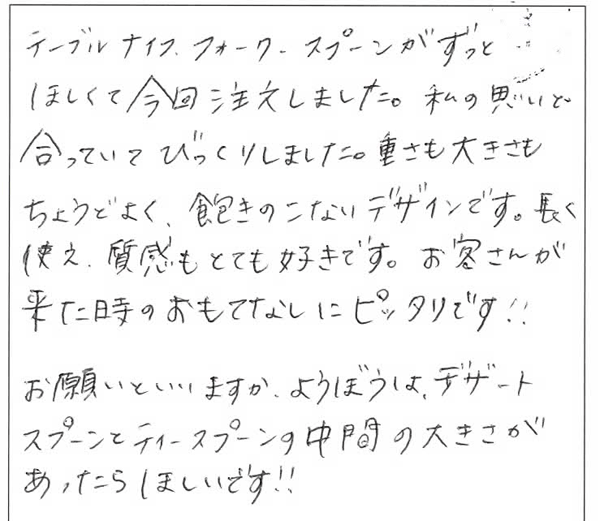 テーブルナイフ、フォーク、スプーンがずっと
ほしくて今回注文しました。私の思いと
合っていてびっくりしました。重さも大きさも
ちょうどよく、飽きのこないデザインです。長く
使え、質感もとても好きです。お客さんが
来た時のおもてなしにピッタリです!!
お願いといいますか、ようぼうは、デザート
スプーンとティースプーンの中間の大きさが
あったらほしいです!!